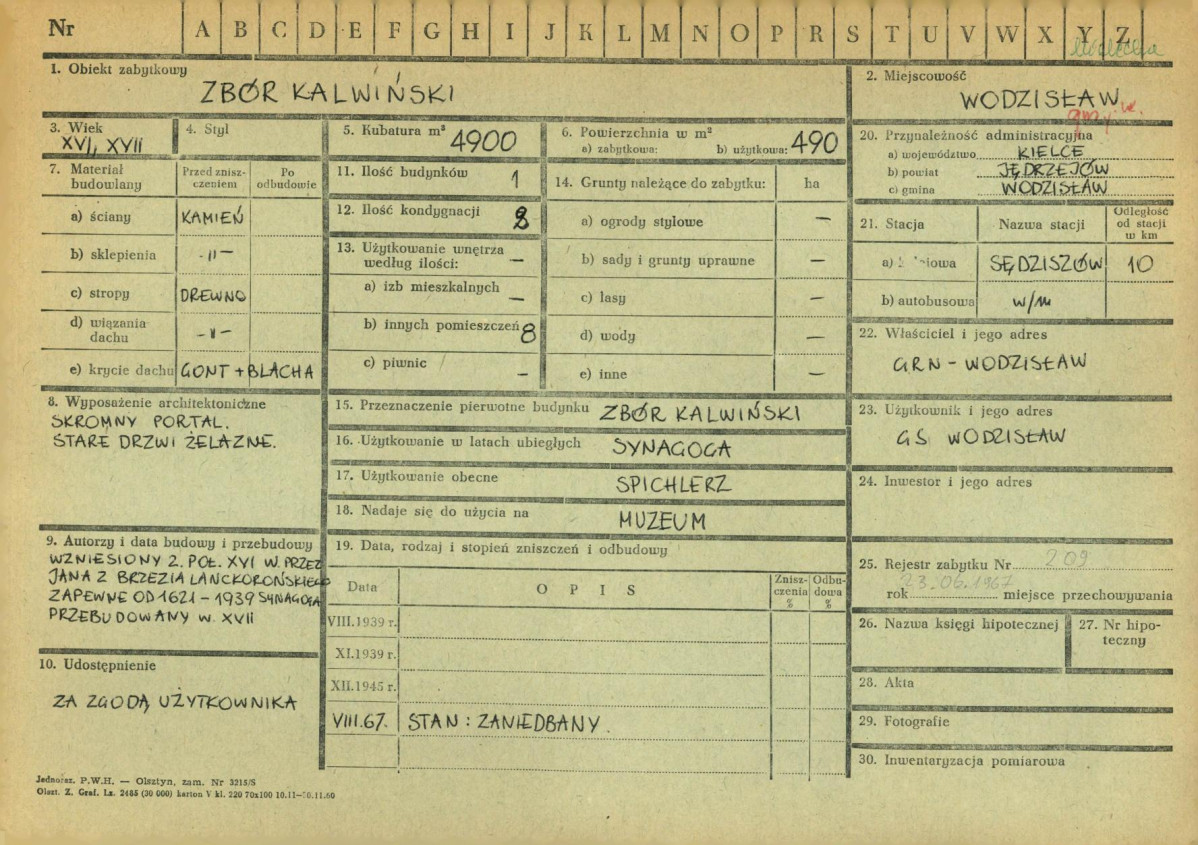 Nr A B C D E F G H I J K L M N O P R S T U V W X Y Z
1. Obiekt zabytkowy
ZBÓR KALWIŃSKI
2. Miejscowość
WODZISŁAW
3. Wiek
XVI, XVII
4. Styl
5. Kubatura m³ 4900
6. Powierzchnia w m²
a) zabytkowa: b) użytkowa: 490
7. Materiał budowlany
Przed zniszczeniem
Po odbudowie
a) ściany KAMIEŃ
b) sklepienia -〃-
c) stropy DREWNO
d) wiązania dachu -〃-
e) krycie dachu GONT + BLACHA
8. Wyposażenie architektoniczne
SKROMNY PORTAL.
STARE DRZWI ŻELAZNE.
9. Autorzy i data budowy i przebudowy
WZNIESIONY 2. POŁ. XVI W. PRZEZ
JANA Z BRZEZIA LANCKOROŃSKIEGO
ZAPEWNE OD 1621 - 1939 SYNAGOGA
PRZEBUDOWANY W. XVII
10. Udostępnienie
ZA ZGODĄ UŻYTKOWNIKA
11. Ilość budynków 1
12. Ilość kondygnacji
13. Użytkowanie wnętrza
według ilości: —
a) izb mieszkalnych —
b) innych pomieszczeń 8
c) piwnic —
14. Grunty należące do zabytku: ha
a) ogrody stylowe —
b) sady i grunty uprawne —
c) lasy —
d) wody —
e) inne —
15. Przeznaczenie pierwotne budynku ZBÓR KALWIŃSKI
16. Użytkowanie w latach ubiegłych SYNAGOGA
17. Użytkowanie obecne SPICHLERZ
18. Nadaje się do użycia na MUZEUM
19. Data, rodzaj i stopień zniszczeń i odbudowy
Data OPIS Zniszczenia % Odbudowa %
VIII.1939 r.
XI.1939 r.
XII.1945 r.
VIII.67. STAN: ZANIEDBANY.
20. Przynależność administracyjna
a) województwo KIELCE
b) powiat JĘDRZEJÓW
c) gmina WODZISŁAW
21. Stacja Nazwa stacji Odległość od stacji w km
a) SĘDZISZÓW 10
b) autobusowa w/m
22. Właściciel i jego adres
GRN - WODZISŁAW
23. Użytkownik i jego adres
GS WODZISŁAW
24. Inwestor i jego adres
25. Rejestr zabytku Nr 209
23.06.1967
rok miejsce przechowywania
26. Nazwa księgi hipotecznej
27. Nr hipoteczny
28. Akta
29. Fotografie
30. Inwentaryzacja pomiarowa
Jednoraz. P.W.H. — Olsztyn, zam. Nr 3215/S
Olszt. Z. Graf. Lz. 2485 (30 000) karton V kl. 220 70x100 10.11—